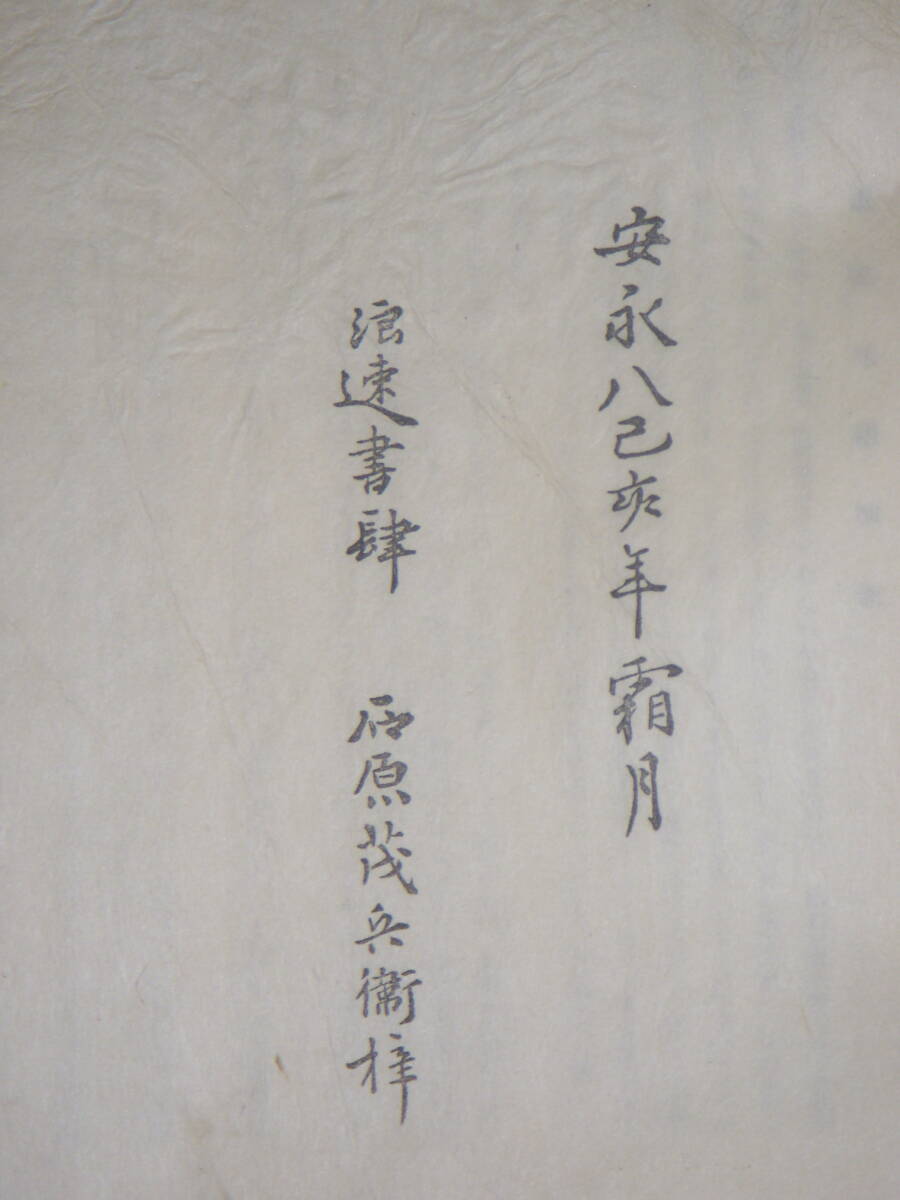 安永八己亥年霜月
浪速書肆 石原茂兵衛梓